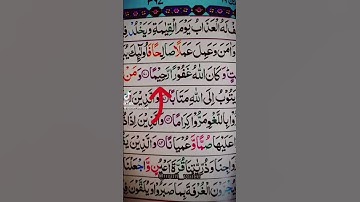 لَهُ الْعَذَابُ يَوْمَ الْقِيٰمَةِ وَيَخْلُدْ
وَاٰمَنَ وَعَمِلَ عَمَلًا صَالِحًا فَاُولٰٓئِكَ
وَكَانَ اللّٰهُ غَفُوْرًا رَّحِيْمًا ۝ وَمَنْ
يَتُوْبُ اِلَى اللّٰهِ مَتَابًا ۝ وَالَّذِيْنَ
وْا بِاللَّغْوِ مَرُّوْا كِرَامًا ۝ وَالَّذِيْنَ اِذَا
عَلَيْهَا صُمًّا وَّعُمْيَانًا ۝ وَالَّذِيْنَ
وَاجِنَا وَذُرِّيّٰتِنَا قُرَّةَ اَعْيُنٍ وَّاجْعَلْنَا
يُجْزَوْنَ الْغُرْفَةَ بِمَا صَبَرُوْا وَيُلَقَّوْنَ